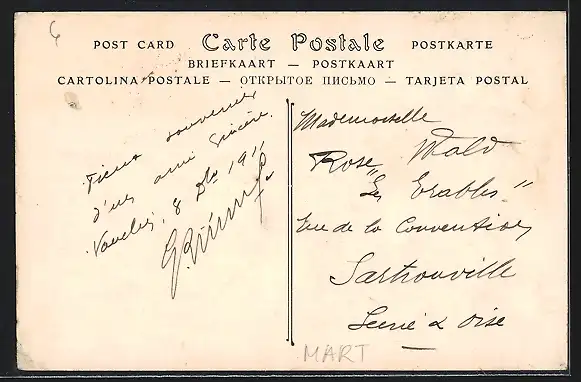 POST CARD Carte Postale POSTKARTE
BRIEFKAART — POSTKAART
CARTOLINA POSTALE — ОТКРЫТОЕ ПИСЬМО — TARJETA POSTAL
souvenir
d'un ami sincère.
8 Dbre 1911
Mademoiselle
Rose Wald
"Les Erables"
Rue de la Convention
Sartrouville
Seine & Oise
MART